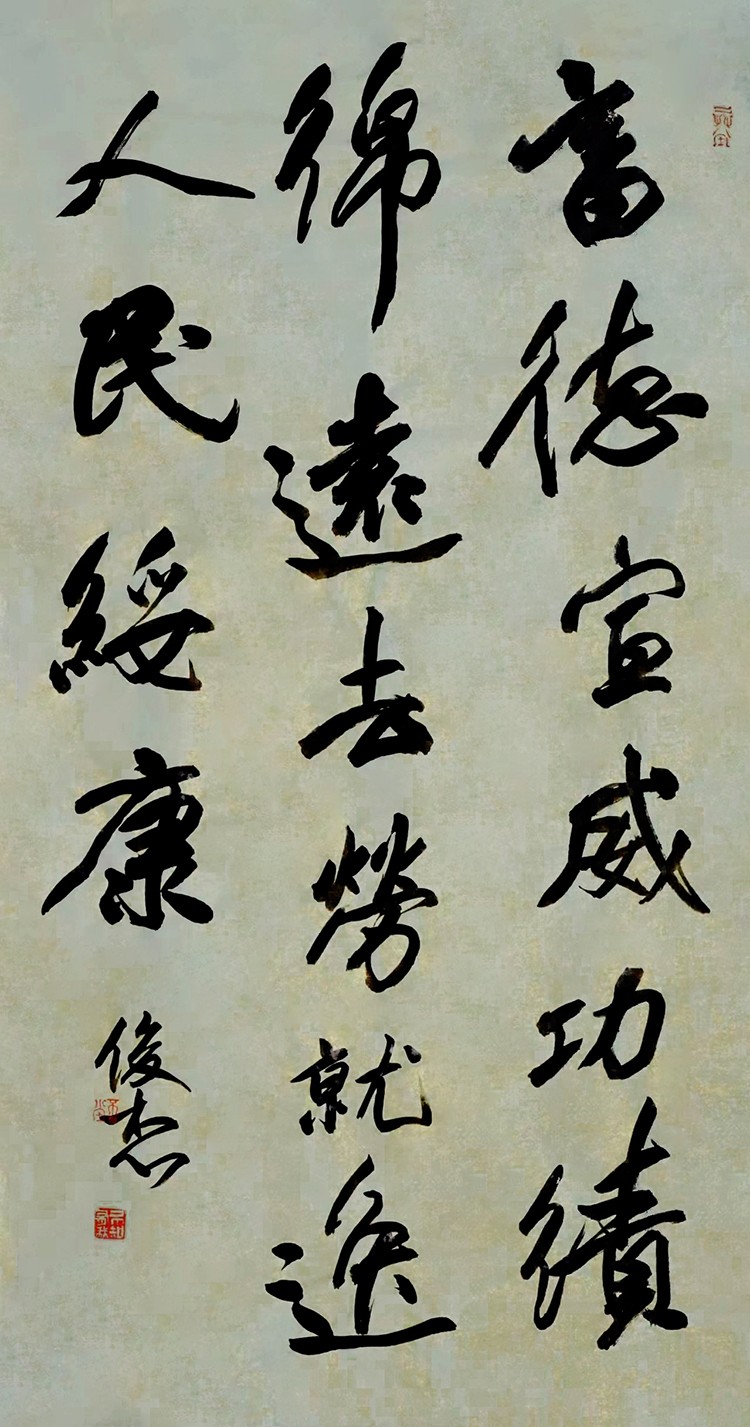 富德宣威功績
綿遠去勞就逸
人民綏康
俊杰